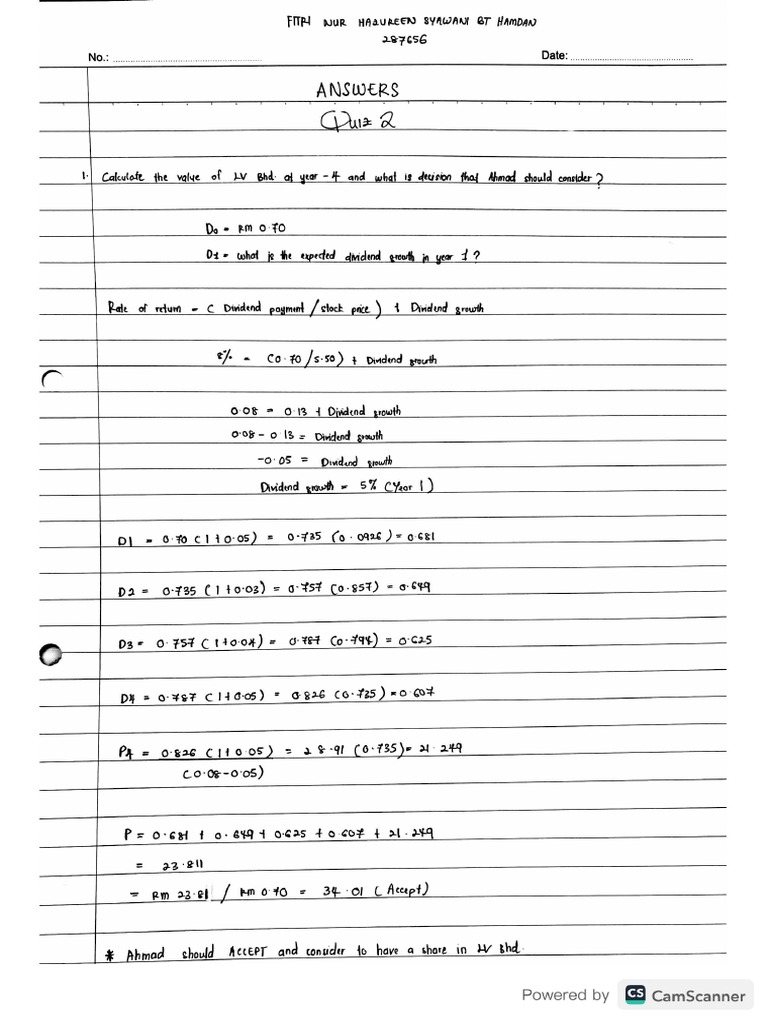 FITRI NUR HAZUREEN SYAWANI BT HAMDAN
287656
No.: Date:
ANSWERS
Quiz 2
1. Calculate the value of LV Bhd. at year -4 and what is decision that Ahmad should consider?
D0 = RM 0.70
D1 = what is the expected dividend growth in year 1?
Rate of return = ( Dividend payment / stock price ) + Dividend growth
8% = (0.70 / 5.50) + Dividend growth
0.08 = 0.13 + Dividend growth
0.08 - 0.13 = Dividend growth
-0.05 = Dividend growth
Dividend growth = 5% (Year 1)
D1 = 0.70 (1+0.05) = 0.735 (0.0926) = 0.681
D2 = 0.735 (1+0.03) = 0.757 (0.857) = 0.649
D3 = 0.757 (1+0.04) = 0.787 (0.794) = 0.625
D4 = 0.787 (1+0.05) = 0.826 (0.735) = 0.607
P4 = 0.826 (1+0.05) = 28.91 (0.735) = 21.249
(0.08-0.05)
P = 0.681 + 0.649 + 0.625 + 0.607 + 21.249
= 23.811
= RM 23.81 / RM 0.70 = 34.01 (Accept)
* Ahmad should ACCEPT and consider to have a share in LV Bhd.
Powered by CS CamScanner